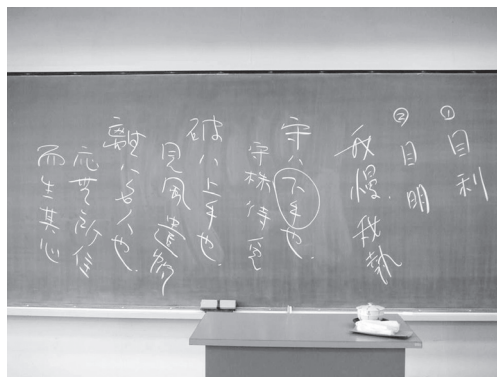 ①目利
②目明
我慢.我執
守ハ下手也.
守株待兎
破ハ上手也.
見風遣
離ハ名人也.
應無所住
而生其心